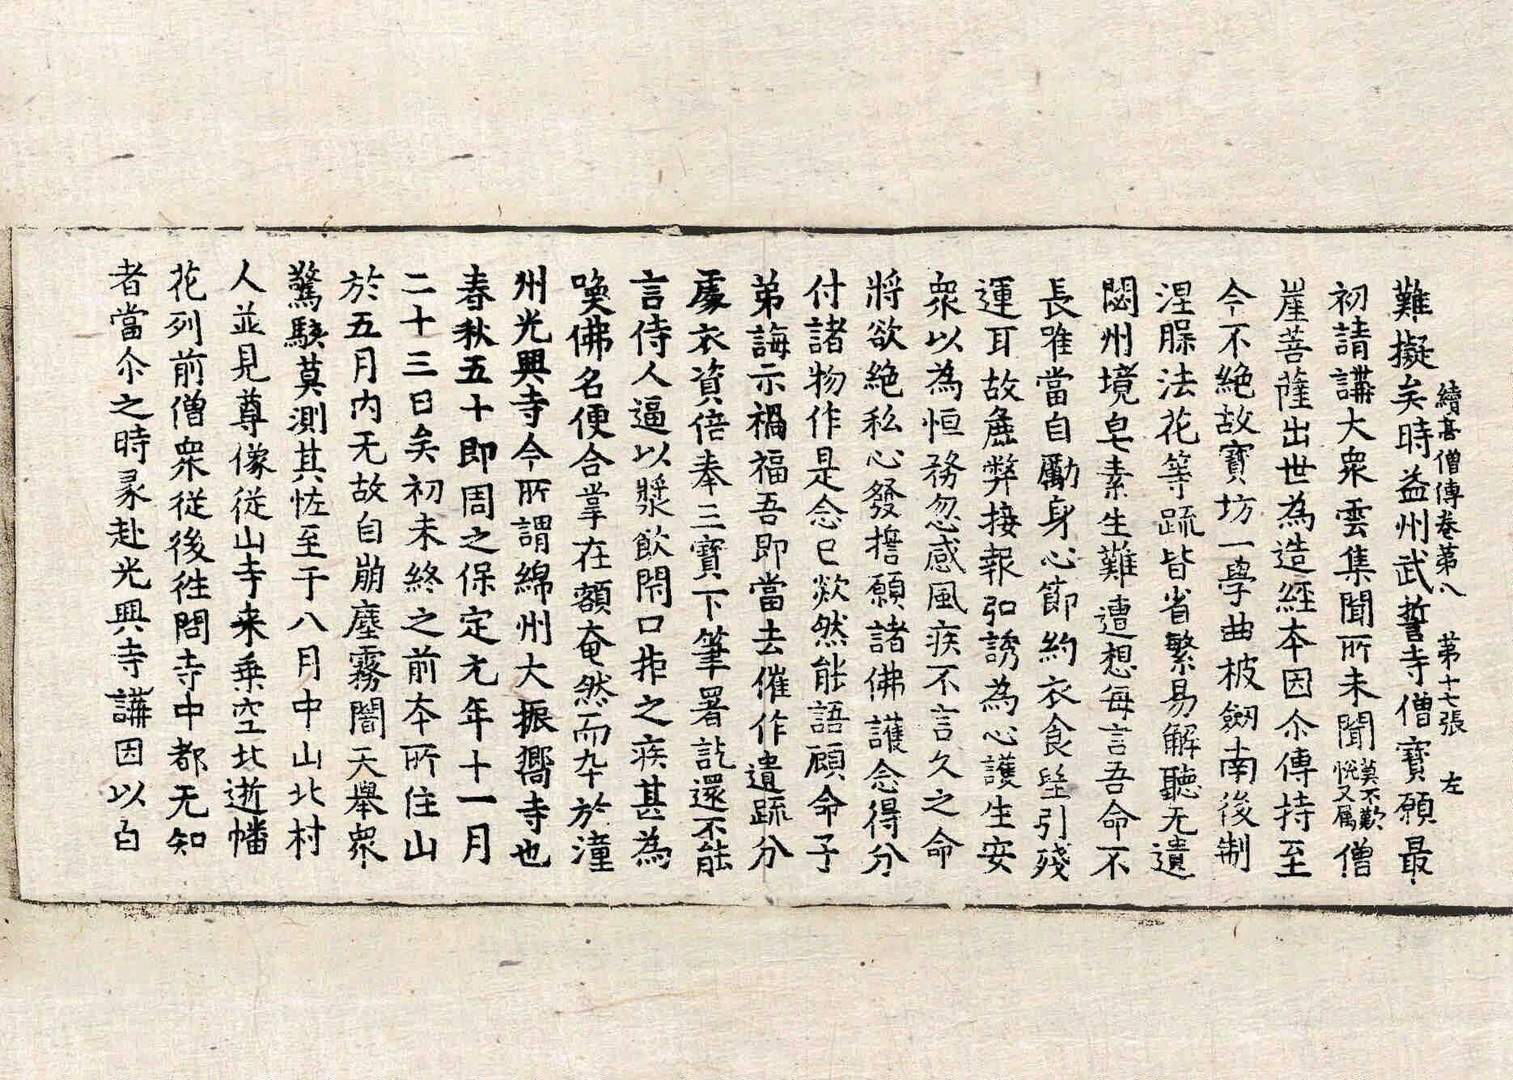 難擬矣時益州武誓寺僧寶願最
續高僧傳卷第八 第十七張 左
初請講大衆雲集聞所未聞莫不歎悅又屬僧
崖菩薩出世為造經本因尒傳持至
今不絶故寶坊一學曲被劒南後制
涅槃法花等䟽皆省繁易解聽无遺
閟州境皂素生難遭想每言吾命不
長唯當自勵身心節約衣食䀨引殘
運耳故麁弊接報弘誘為心護生安
衆以為恒務忽感風疾不言久之命
將欲絶私心發擔願諸佛護念得分
付諸物作是念已欻然能語顧命子
弟誨示禍福吾即當去催作遺䟽分
處衣資倍奉三寶下筆署訖還不能
言侍人逼以漿飲閇口拒之疾甚為
喚佛名便合掌在額奄然而卒於潼
州光興寺今所謂綿州大振嚮寺也
春秋五十即周之保定元年十一月
二十三日矣初未終之前本所住山
於五月内无故自崩塵霧闇天舉衆
驚駭莫測其恠至于八月中山北村
人並見尊像從山寺来乗空北逝幡
花列前僧衆從後徃問寺中都无知
者當尒之時彖赴光興寺講因以白